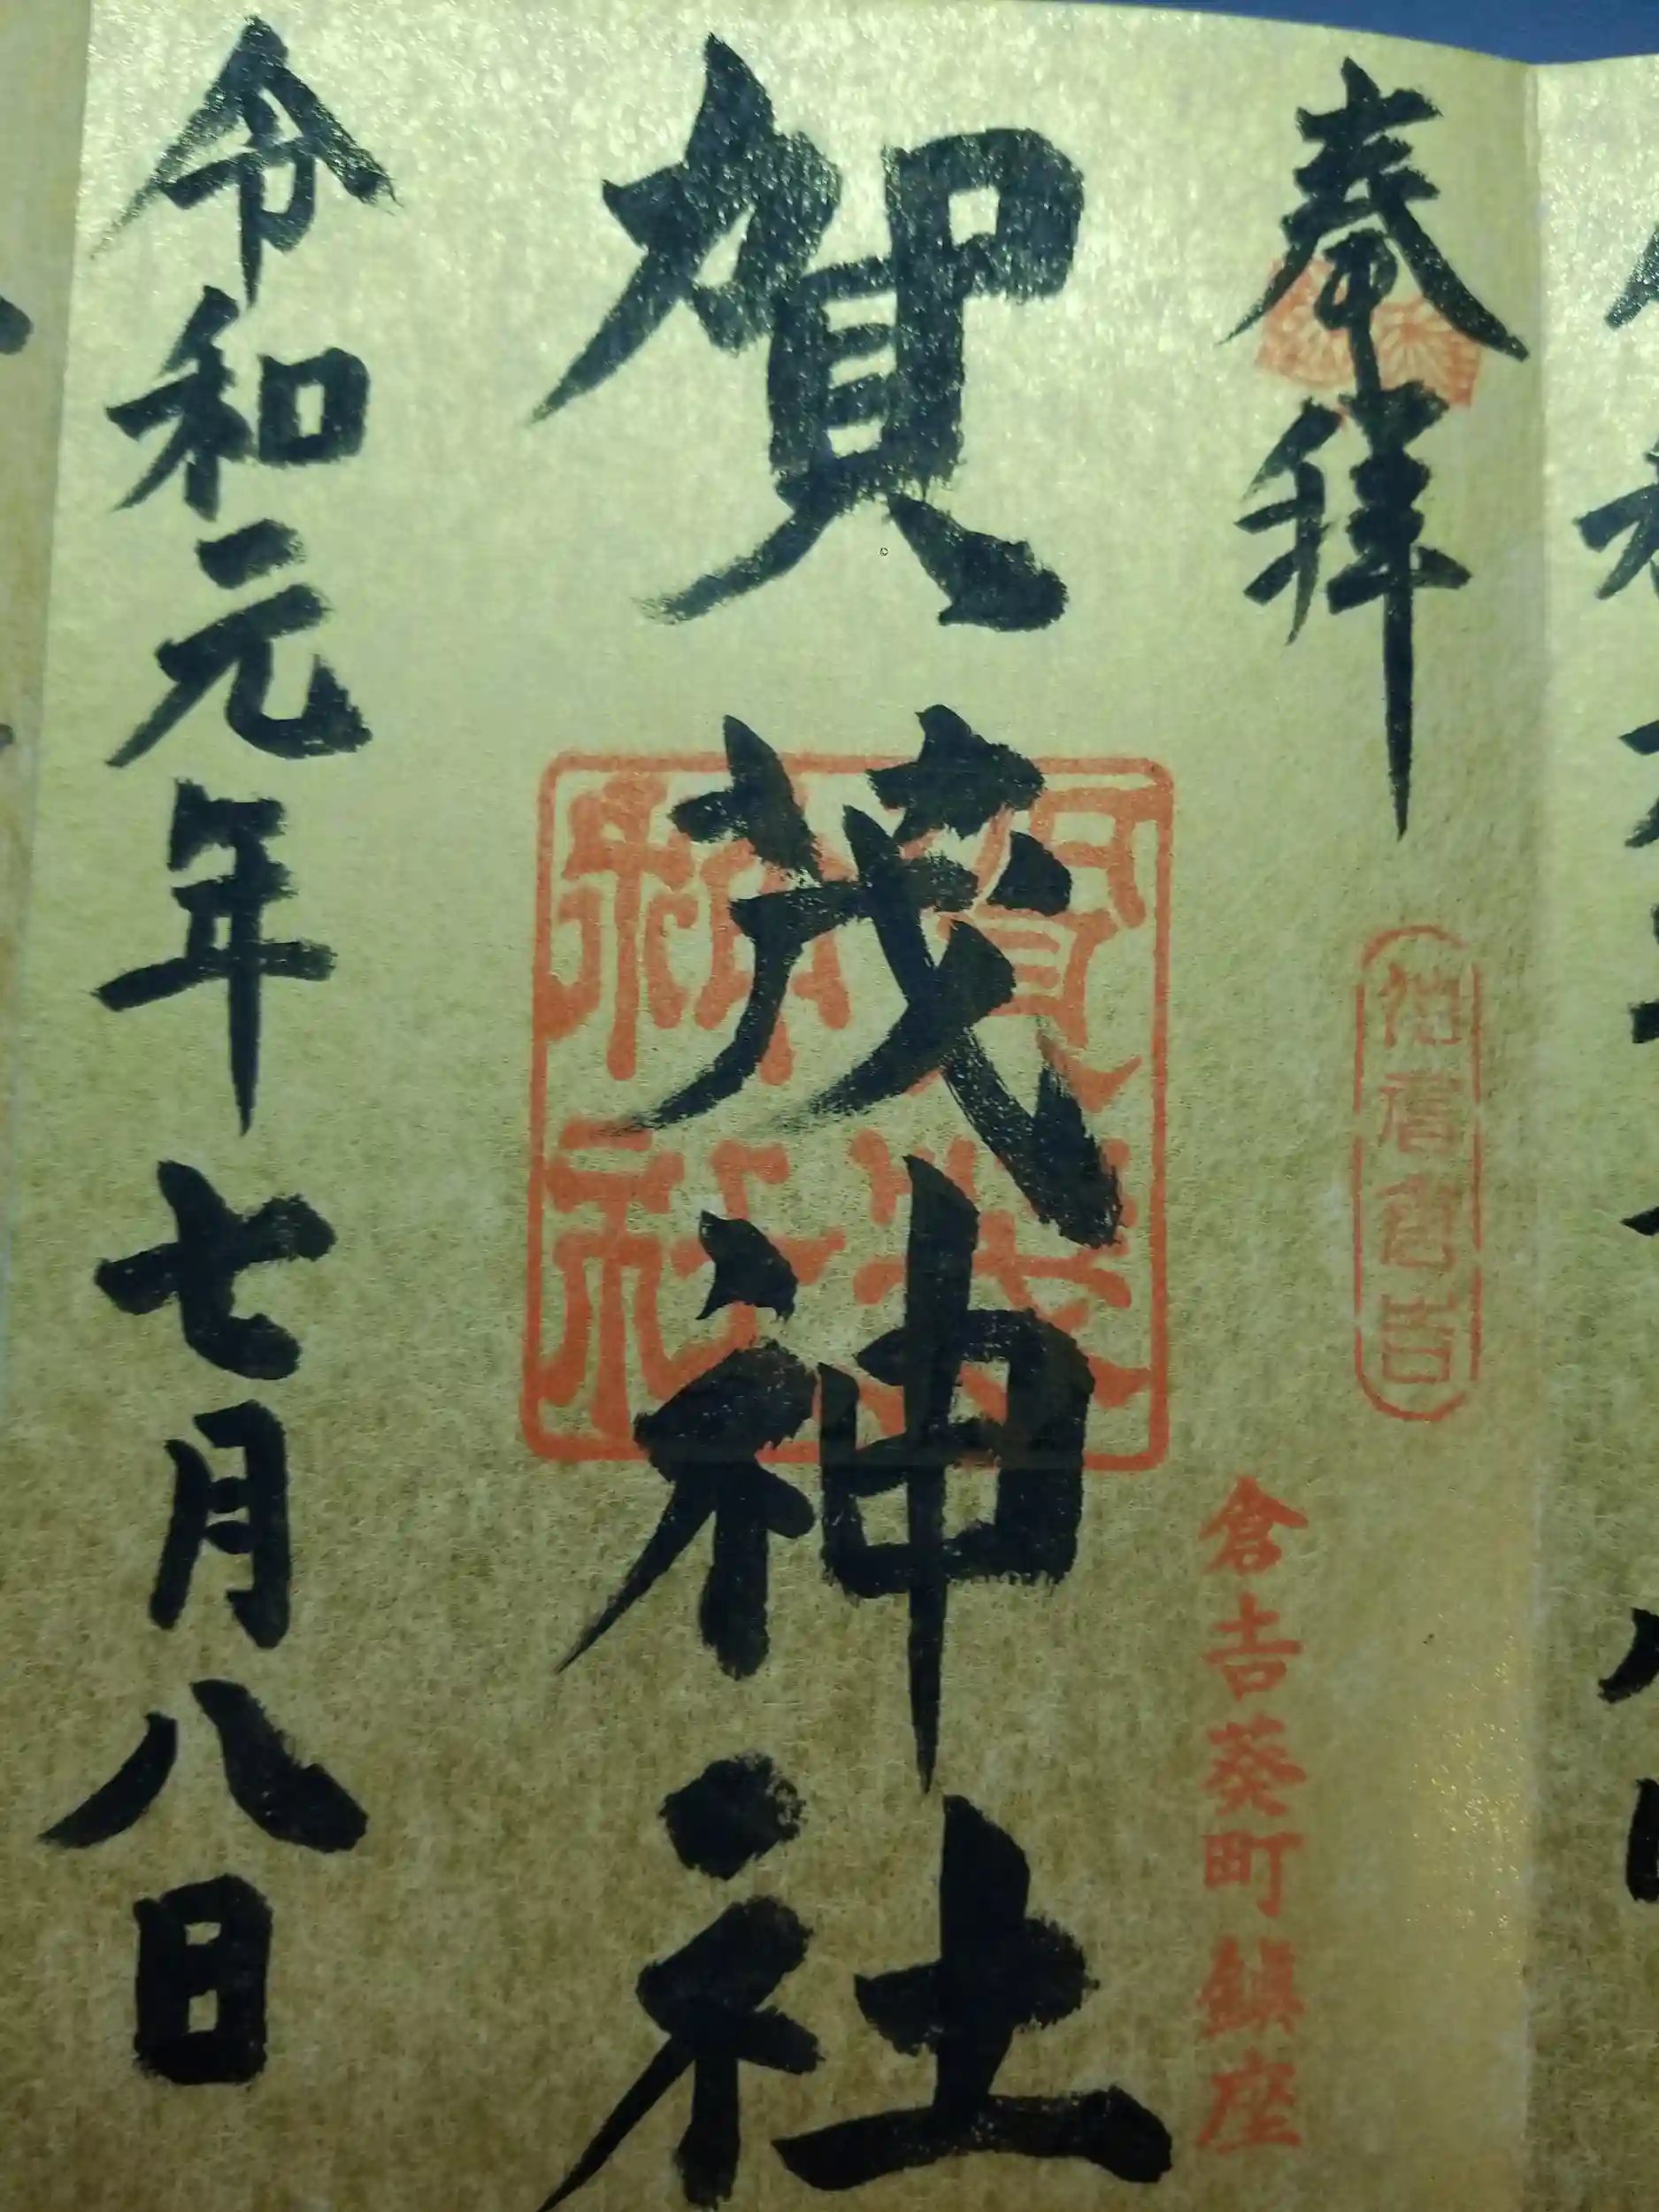 奉拝
伯耆倉吉
倉吉葵町鎮座
賀茂神社
賀茂神社
令和元年七月八日